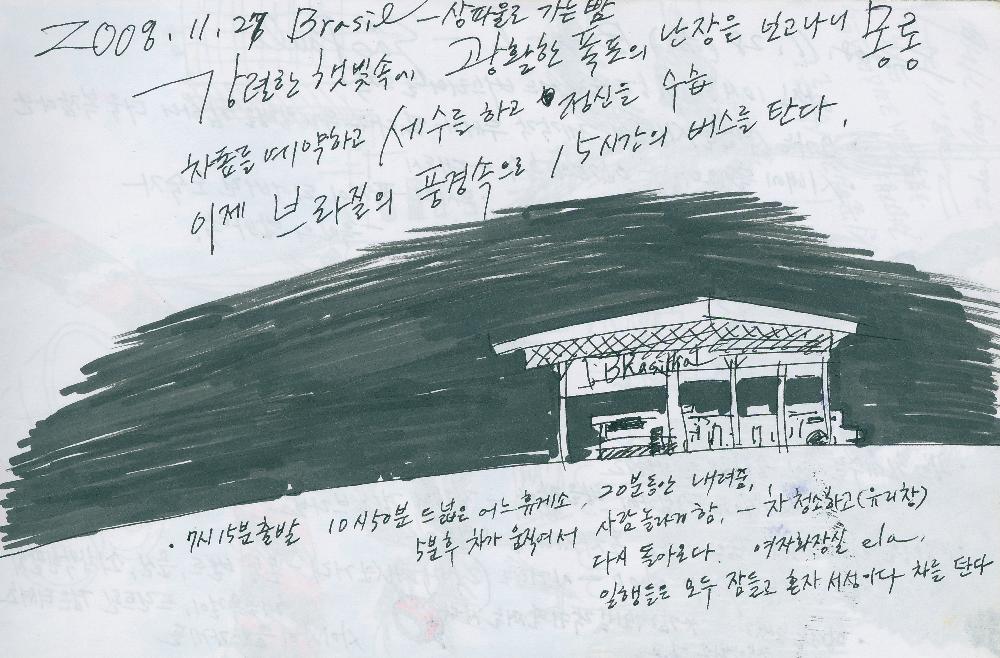 2008. 11. 27 Brasil - 상파울로 가는 밤
강렬한 햇빛속에 광활한 폭포의 난장을 보고나니 몽롱
차표를 예약하고 세수를 하고 정신을 수습
이제 브라질의 풍경속으로 15시간의 버스를 탄다.
BRasilka
. 7시 15분 출발 10시 50분 드넓은 어느 휴게소, 20분동안 내려줌,
5분후 차가 움직여서 사람 놀라게 함, - 차 청소하고 (유리창)
다시 돌아온다. 여자화장실 ela.
일행들은 모두 잠들고 혼자 서성이다 차를 탄다